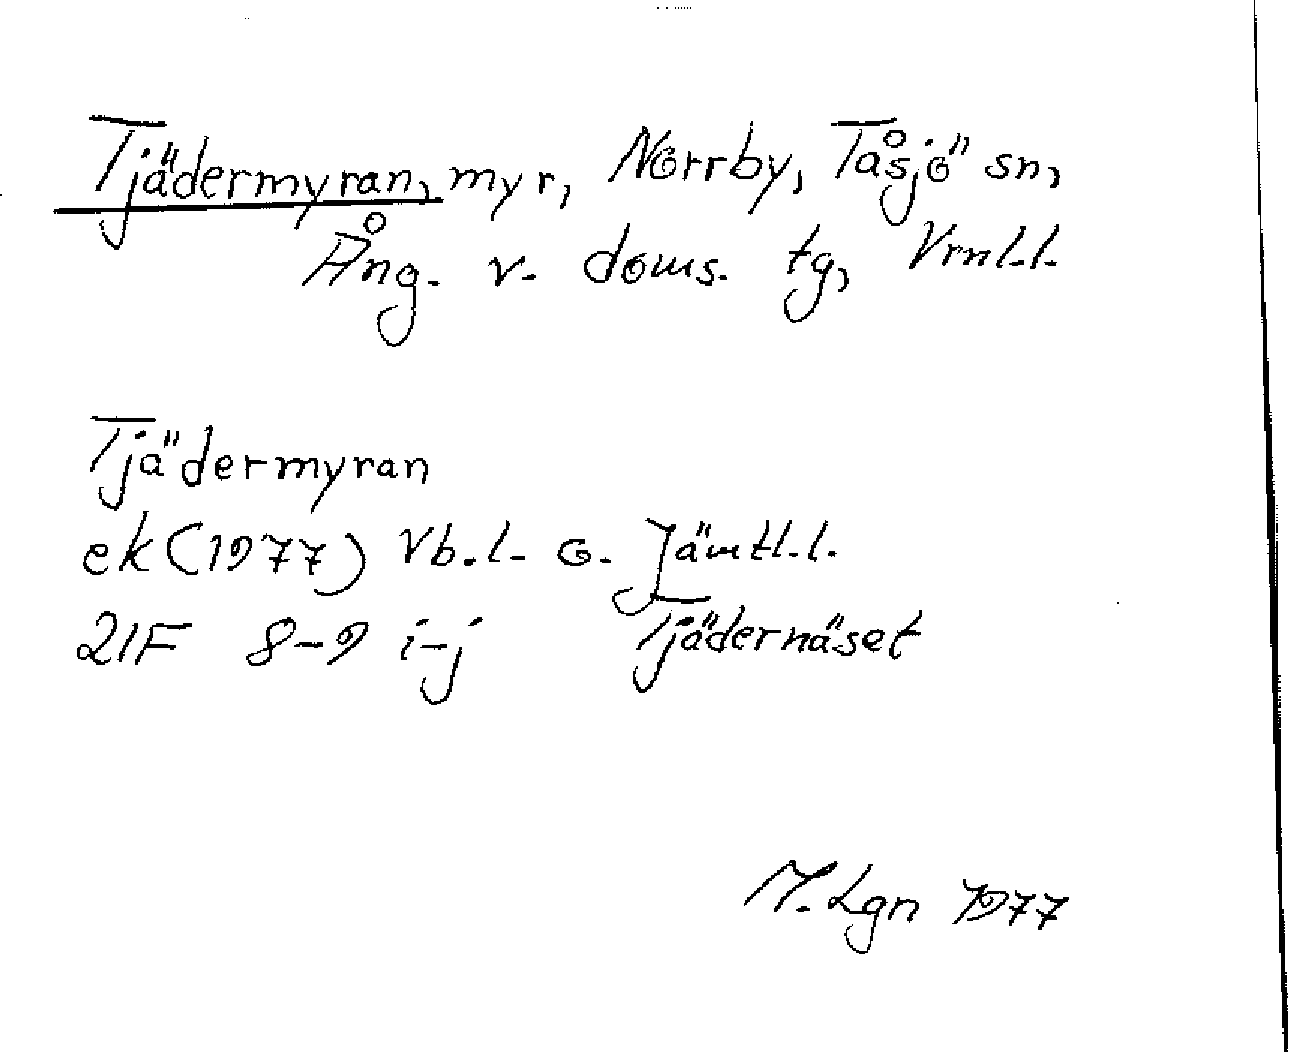 Tjädermyran, myr, Norrby, Tåsjö sn,
Ång. v. doms. tg, Vrnl.l.
Tjädermyran
ek (1977) Vb.l. o. Jämtl.l.
21F 8-9 i-j Tjädernäset
M. Lgn 1977